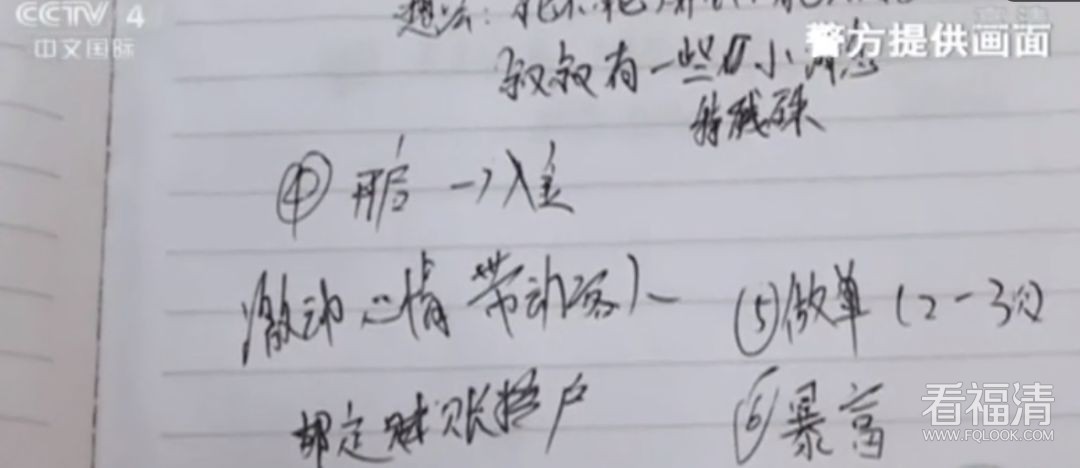 CCTV 4
中文国际
警方提供画面
想法:
叔叔有一些小
④ 开户 → 入金
激动心情 带动客人
(5) 做单 (2-3次)
绑定 账户
(6) 暴富
看福清
WWW.FQLOOK.COM